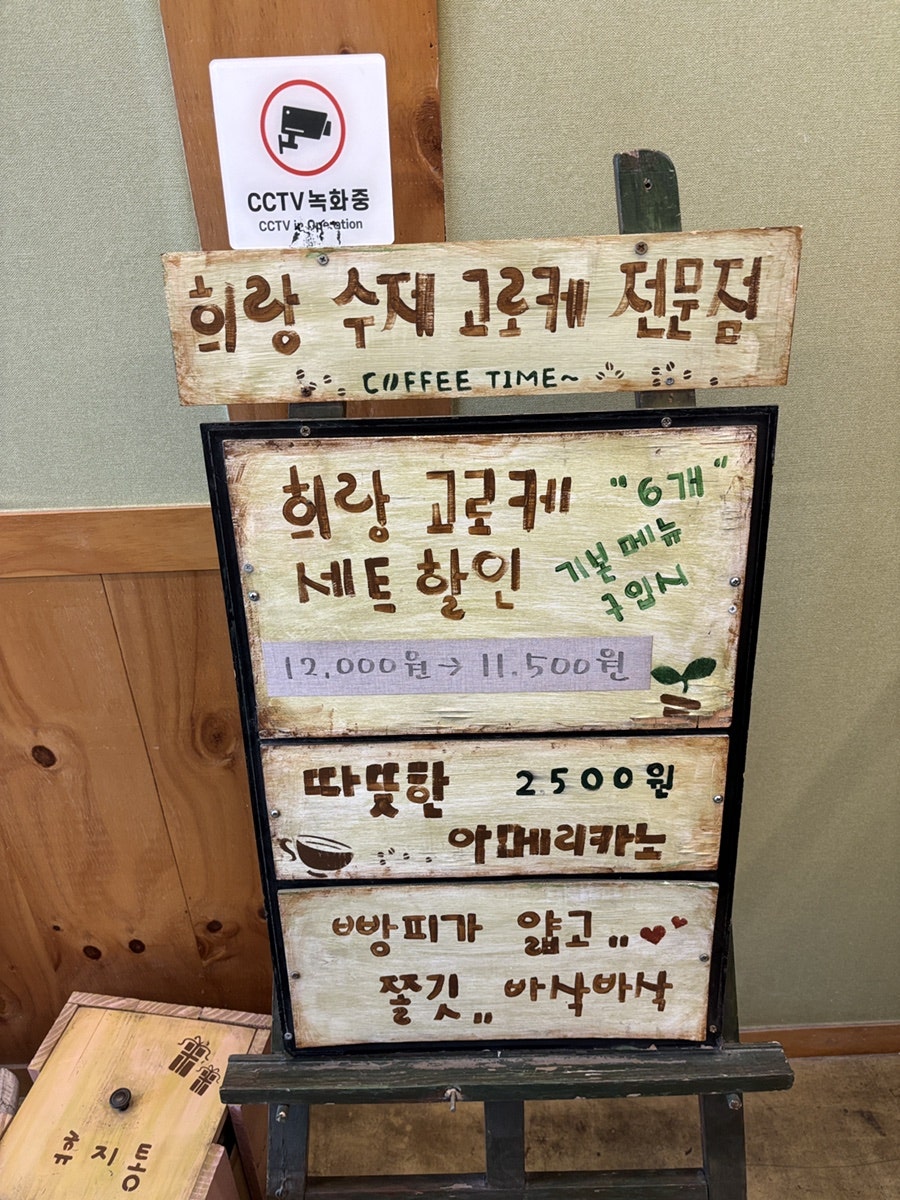 CCTV 녹화중
CCTV in Operation
희랑 수제 고로케 전문점
COFFEE TIME~
희랑 고로케 "6개"
세트 할인 기본 메뉴
구입시
12,000원→11.500원
따뜻한 2500원
아메리카노
빵피가 얇고,,
쫄깃,, 바삭바삭
휴지통